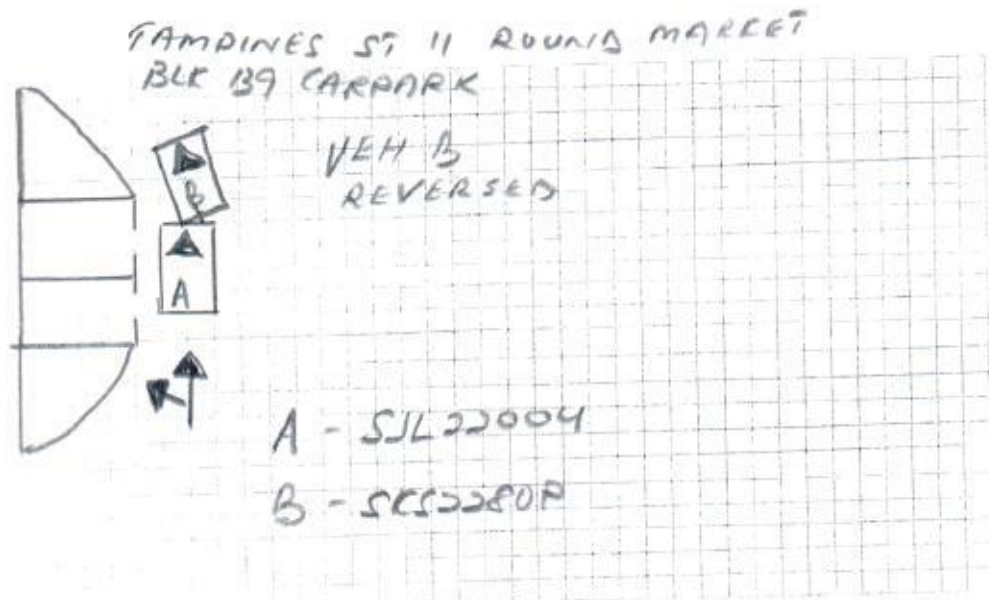 TAMPINES ST 11 ROUND MARKET
BLK 139 CARPARK
VEH B
REVERSED
B
A
A - SJL2200Y
B - SKS2280P